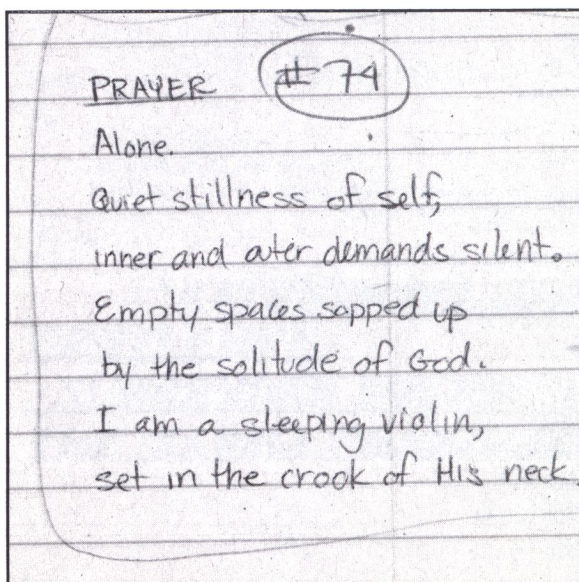 PRAYER #74
Alone.
Quiet stillness of self,
inner and outer demands silent.
Empty spaces sopped up
by the solitude of God.
I am a sleeping violin,
set in the crook of His neck.